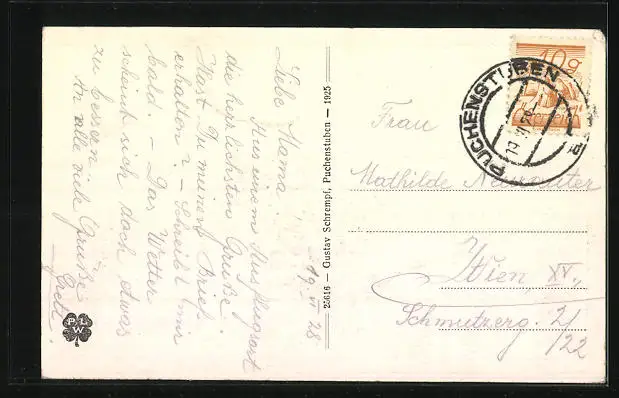 19. VI 28
Liebe Mama!
Aus einem Ausflugsort
die herzlichsten Grüße.
Hast Du meinen Brief
erhalten? – Schreibt mir
bald. – Das Wetter
scheint sich doch etwas
zu bessern.
An alle viele Grüße
Gretl.
PLW
25616 — Gustav Schrempf, Puchenstuben — 1925
10g
PUCHENSTUBEN
Frau
Mathilde
Wien XV.,
Schmutzerg. 2/
/22